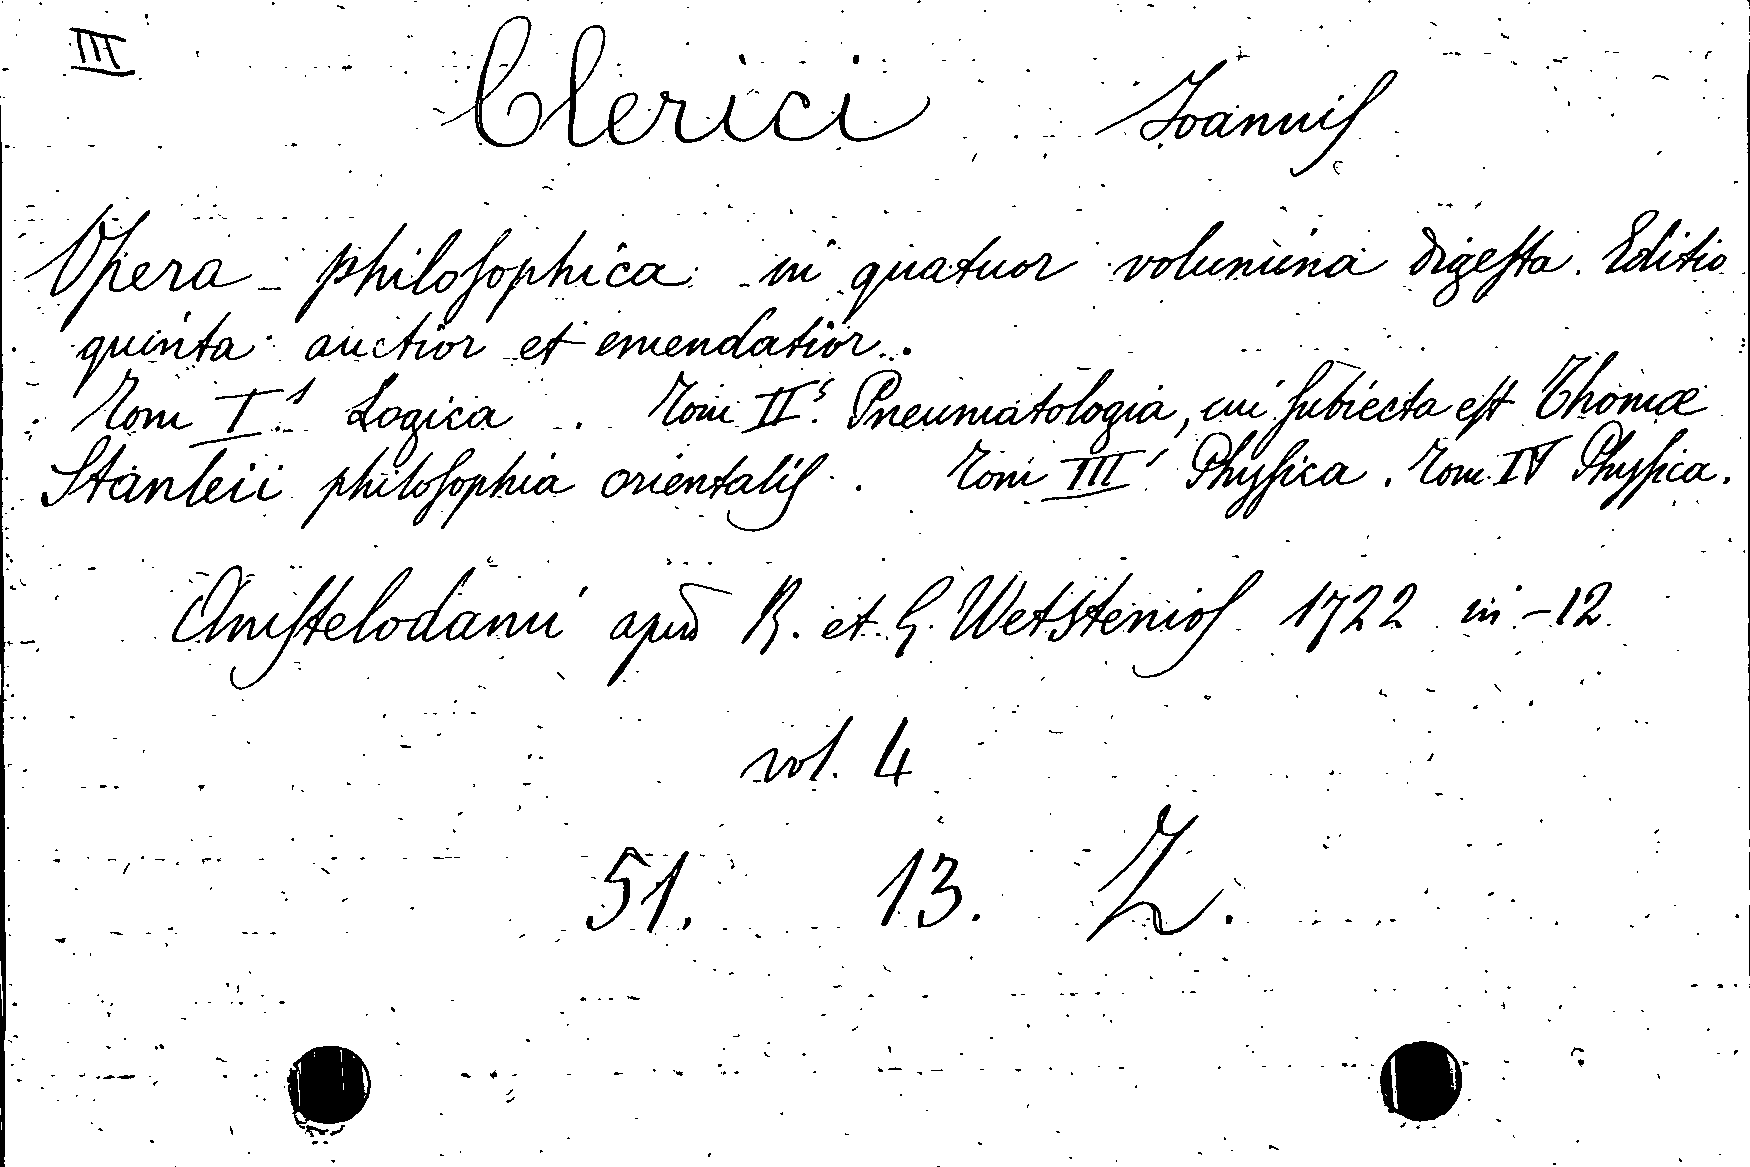 III
Clerici Joannis
Opera philosophica in quatuor volumina digesta. Editio
quinta auctior et emendatior.
Tom I.s Logica. Tom II.s Pneumatologia, cui subiecta est Thomæ
Stanleii philosophia orientalis. Tom III.s Physica. Tom IV Physica.
Amstelodami apud R. et G. Wetstenios 1722 in-12
vol. 4
51. 13. Z.